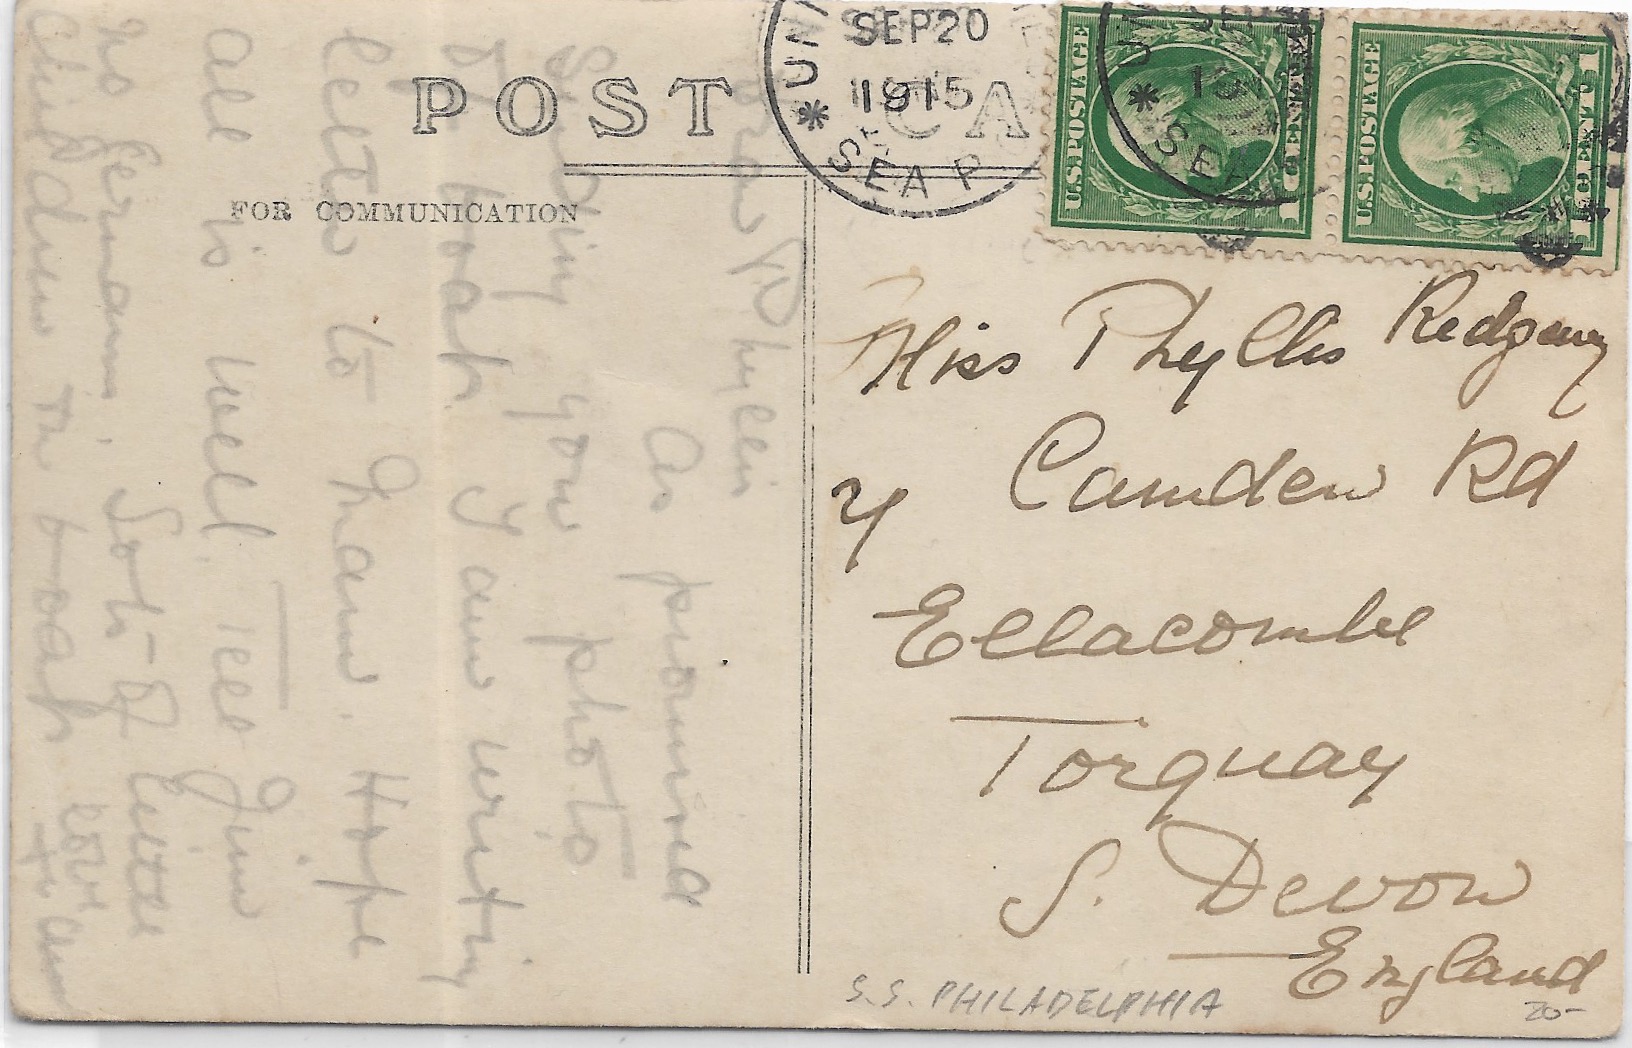 POST CA
FOR COMMUNICATION
SEP 20
1915
SEA P
U.S. POSTAGE
1 CENT 1
U.S. POSTAGE
1 CENT 1
Phyllis
As promised
sending you photo
of boat I am writing
letter to Mam. Hope
all is well. Tell Jim
no Germans. Lots of little
children on boat love
Miss Phyllis Redgway
4 Camden Rd
Ellacombe
Torquay
S. Devon
England
S.S. PHILADELPHIA
20-